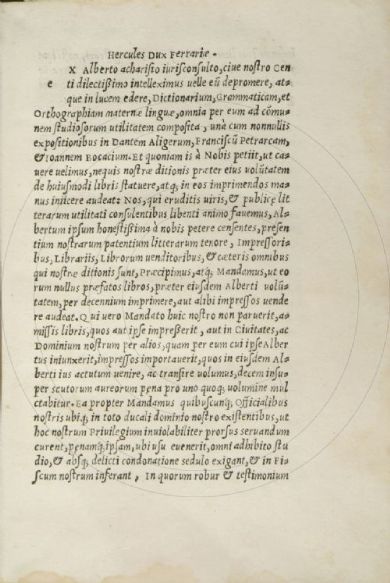 Hercules Dux Ferrariæ.
X Alberto acharisio iurisconsulto, ciue nostro Cen
e ti dilectißimo intelleximus uelle eū depromere, at=
que in lucem edere, Dictionarium, Grammaticam, et
Orthographiam maternæ linguæ, omnia per eum ad cōmu=
nem studiosorum utilitatem composita, unà cum nonnullis
expositionibus in Dantem Aligerum, Franciscū Petrarcam,
& Ioannem Bocacium. Et quoniam is à Nobis petijt, ut ca=
uere uelimus, nequis nostræ ditionis præter eius uolūtatem
de huiusmodi libris statuere, atq; in eos imprimendos ma=
nus inijcere audeat: Nos, qui eruditis uiris, & publicę lit
terarum utilitati consulentibus libenti animo fauemus, Al=
bertum ipsum honestißima à nobis petere censentes, presen
tium nostrarum patentium litterarum tenore, Impressori=
bus, Librarijs, Librorum uenditoribus, & cæteris omnibus
qui nostræ ditionis sunt, Præcipimus, atq; Mandamus, ut eo
rum nullus præfatos libros, præter eiusdem Alberti uolū=
tatem, per decennium imprimere, aut alibi impressos uende
re audeat. Qui uero Mandato huic nostro non paruerit, a=
mißis libris, quos aut ipse impreßerit, aut in Ciuitates, ac
Dominium nostrum per alios, quam per eum cui ipse Alber
tus iniunxerit, impressos importauerit, quos in eiusdem Al=
berti ius actutum uenire, ac transire uolumus, decem insu=
per scutorum aureorum pęna pro uno quoq; uolumine mul
ctabitur. Ea propter Mandamus quibuscunq; Officialibus
nostris ubiq; in toto ducali dominio nostro existentibus, ut
hoc nostrum Priuilegium inuiolabiliter prorsus seruandum
curent, pęnamq; ipsam, ubi usu euenerit, omni adhibito stu
dio, & absq; delicti condonatione sedulo exigant, & in Fi=
scum nostrum inferant, In quorum robur & testimonium